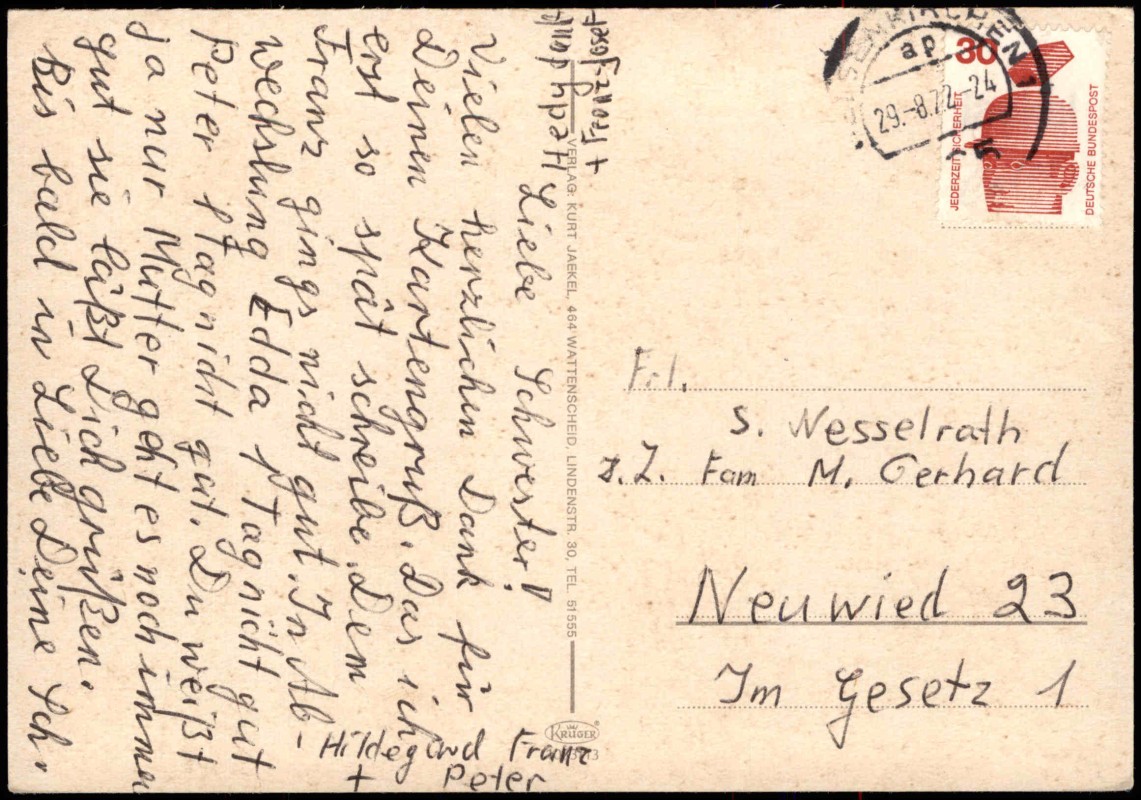 Liebe Schwester!
Vielen herzlichen Dank für
Deinen Kartengruß. Das ich
erst so spät schreibe. Dem
Franz gings nicht gut. In Ab-
wechslung Edda 1 Tag nicht gut
Peter 1 Tag nicht gut. Du weißt
ja nur Mutter geht es noch immer
gut sie läßt Dich grüßen.
Bis bald in Liebe Deine Sch.
Hildegard Franz
+ Peter
Hedy
+ Franz Josef
VERLAG: KURT JAEKEL, 464 WATTENSCHEID, LINDENSTR. 30, TEL. 51555
KRÜGER
SENKIRCHEN 1
ap
29.-8.72-24
30
JEDERZEIT SICHERHEIT
DEUTSCHE BUNDESPOST
Frl.
S. Wesselrath
z.Z. Fam M. Gerhard
Neuwied 23
Im Gesetz 1